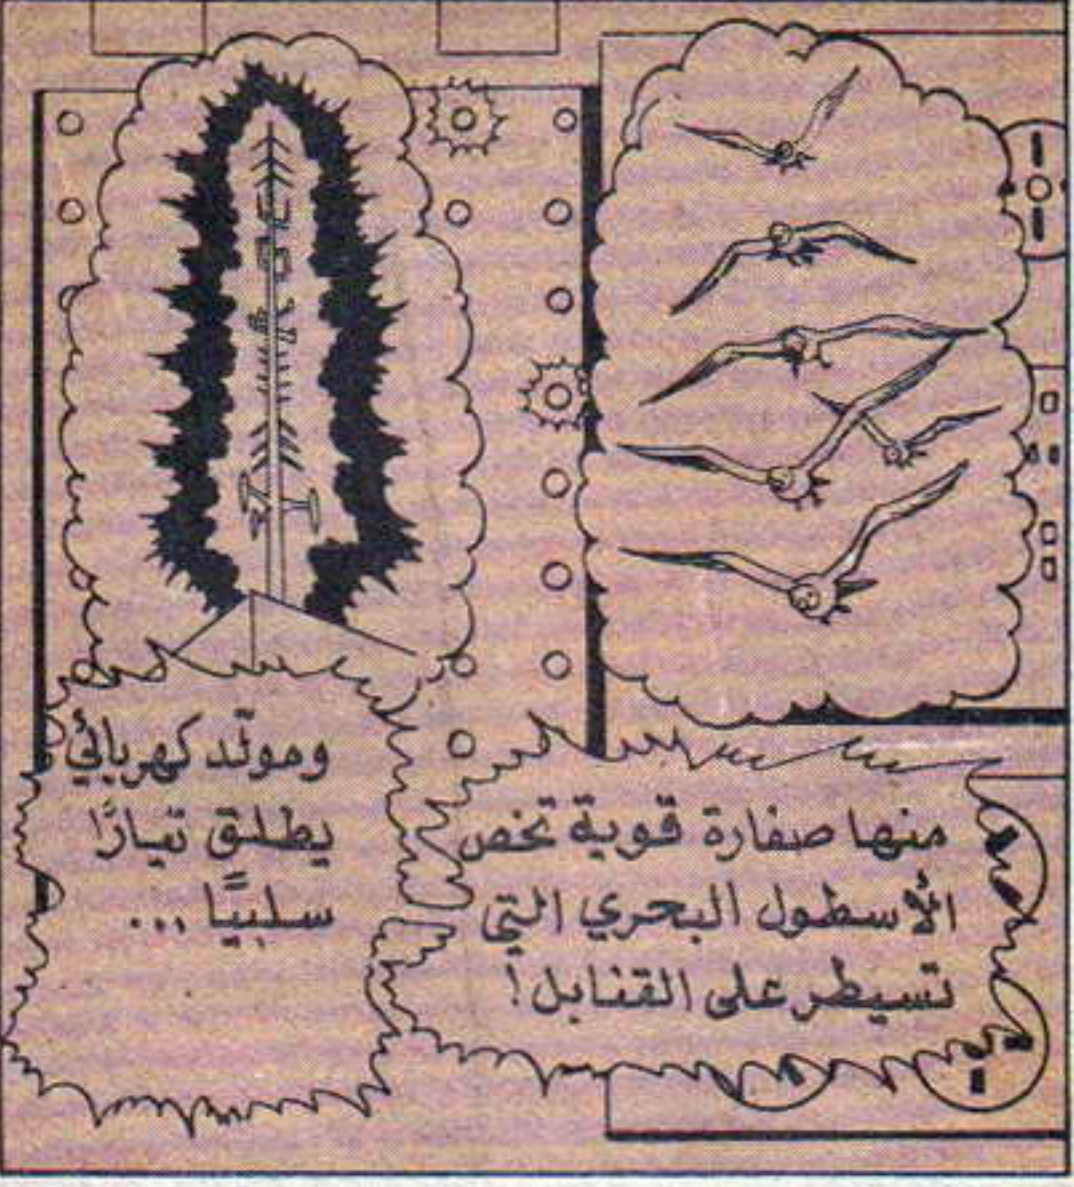 منها صفارة قوية تخص
الأسطول البحري التي
تسيطر على القنابل!
ومولّد كهربائي
يطلق تيارًا
سلبيًّا ...